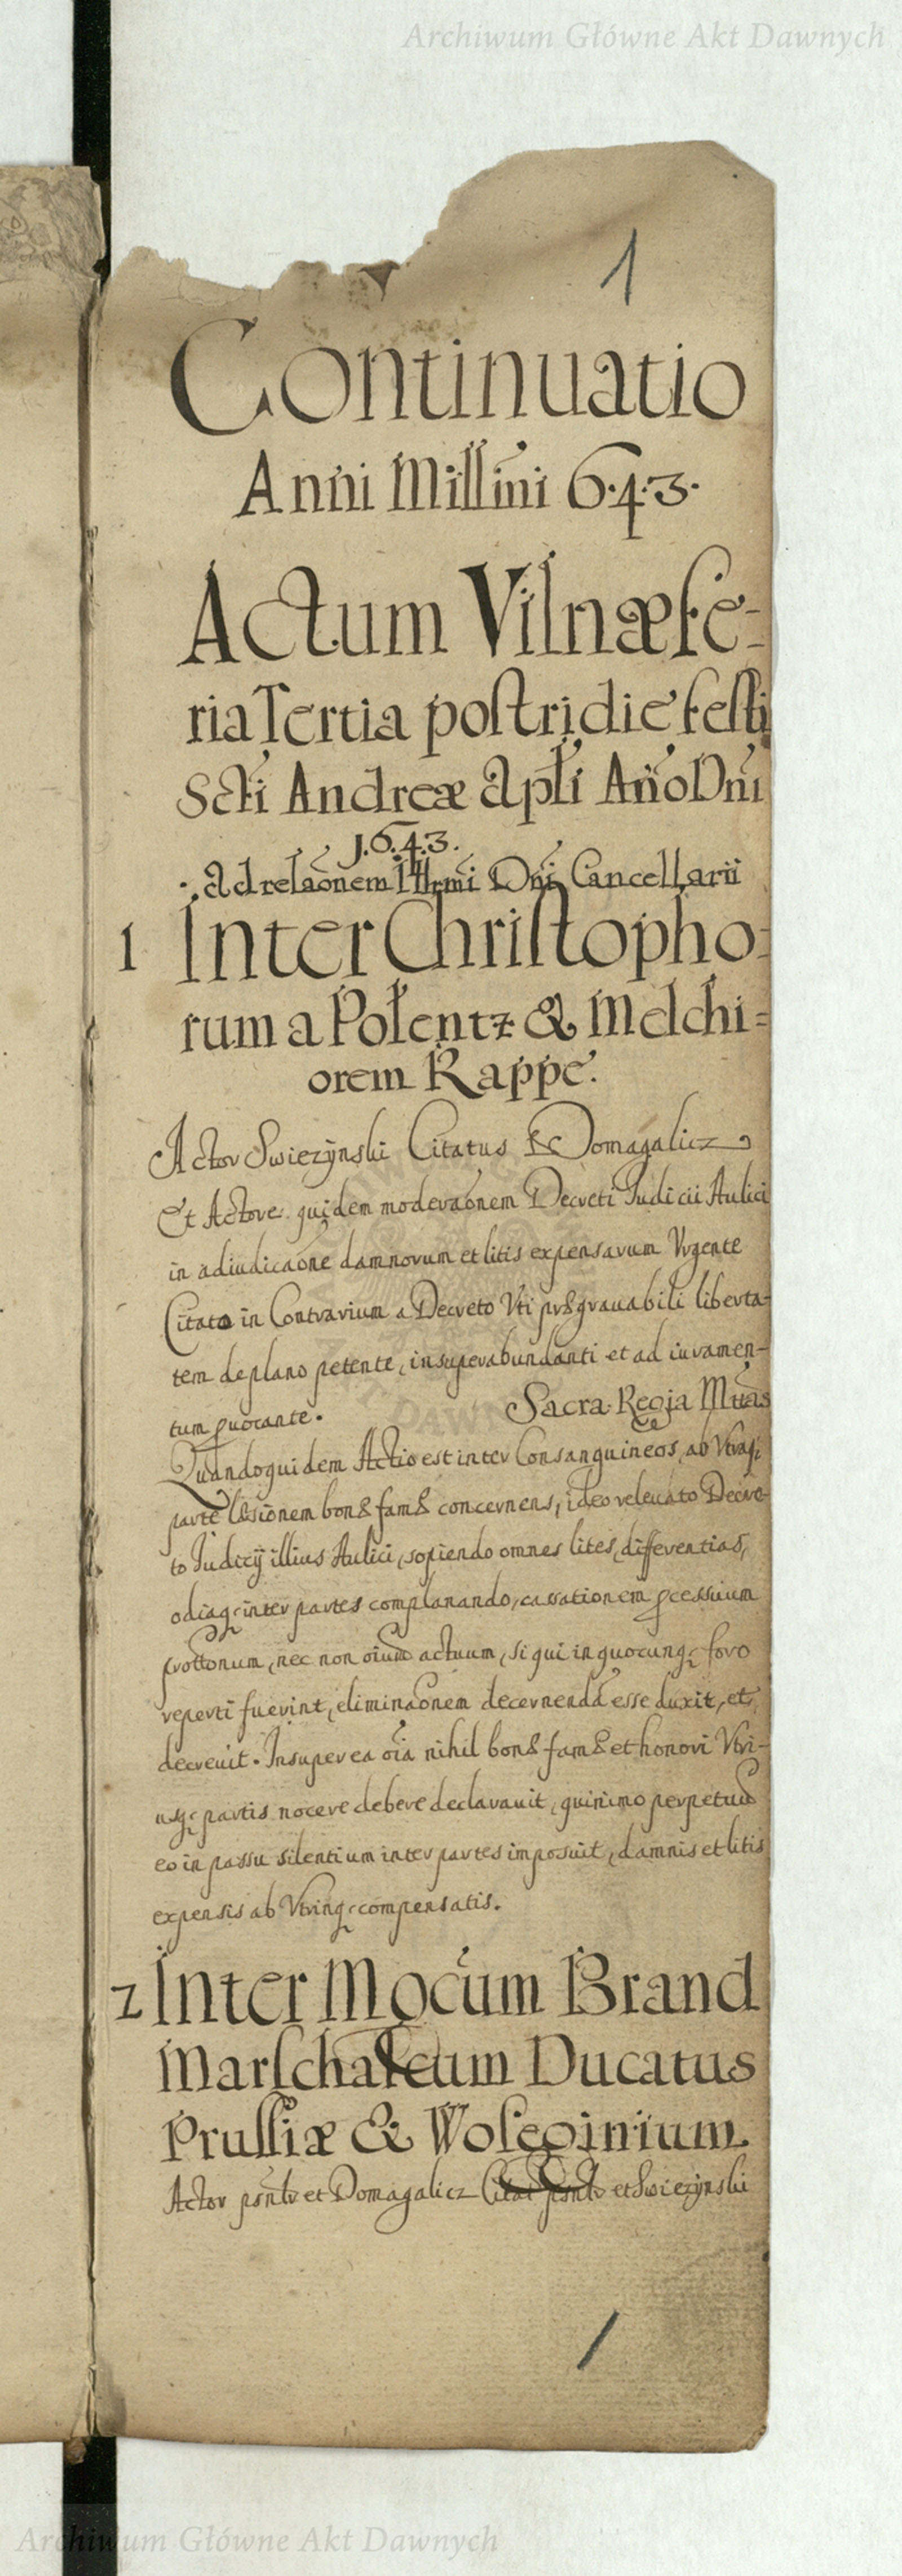 Archiwum Główne Akt Dawnych
1
Continuatio
Anni Millini 6.4.3.
Actum Vilnæ fe-
ria Tertia postridie festi
Scti Andreæ Apli Año Dni
1.6.4.3.
Ad relaõnem Illrmi Dni Cancellarii
1 Inter Christopho-
rum a Polentz & Melchi=
orem Rappe.
Actor Swiezÿnski Citatus & Domagalicz
Et Actore quidem moderaõnem Decreti Judicii Aulici
in adiudicaõne damnorum et litis expensarum Vrgente
Citato in Contrarium a Decreto Vti prægrauabili liberta-
tem deplano petente, insuperabundanti et ad iuramen-
tum prouocante. Sacra Regia Mttas
Quandoquidem Actio est inter Consanguineos, ab Vtraq;
parte læsionem bonæ famæ concernens, ideo releuato Decre-
to Judicÿ illius Aulici, sopiendo omnes lites, differentias,
odiaq; inter partes complanando, cassationem pcessuum
prottonum, nec non oium actuum, si qui in quocunq; foro
reperti fuerint, eliminaõnem decernendã esse duxit, et
decreuit. Insuper ea oĩa nihil bonæ famæ et honori Vtri-
usq; partis nocere debere declarauit, quinimo perpetuũ
eo in passu silentium inter partes imposuit, damnis et litis
expensis ab Vtrinq; compensatis.
2 Inter Mgcum Brand
Marschalcum Ducatus
Prussiæ &
Actor psnts et Domagalicz Citat psnts et Swiezÿnski
Archiwum Główne Akt Dawnych